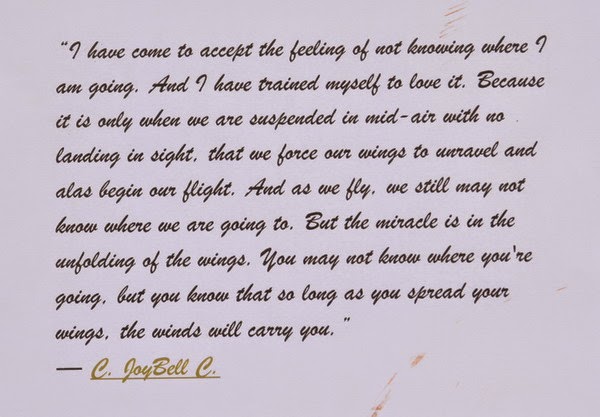 “I have come to accept the feeling of not knowing where I
am going. And I have trained myself to love it. Because
it is only when we are suspended in mid-air with no
landing in sight, that we force our wings to unravel and
alas begin our flight. And as we fly, we still may not
know where we are going to. But the miracle is in the
unfolding of the wings. You may not know where you're
going, but you know that so long as you spread your
wings, the winds will carry you.”
― C. JoyBell C.